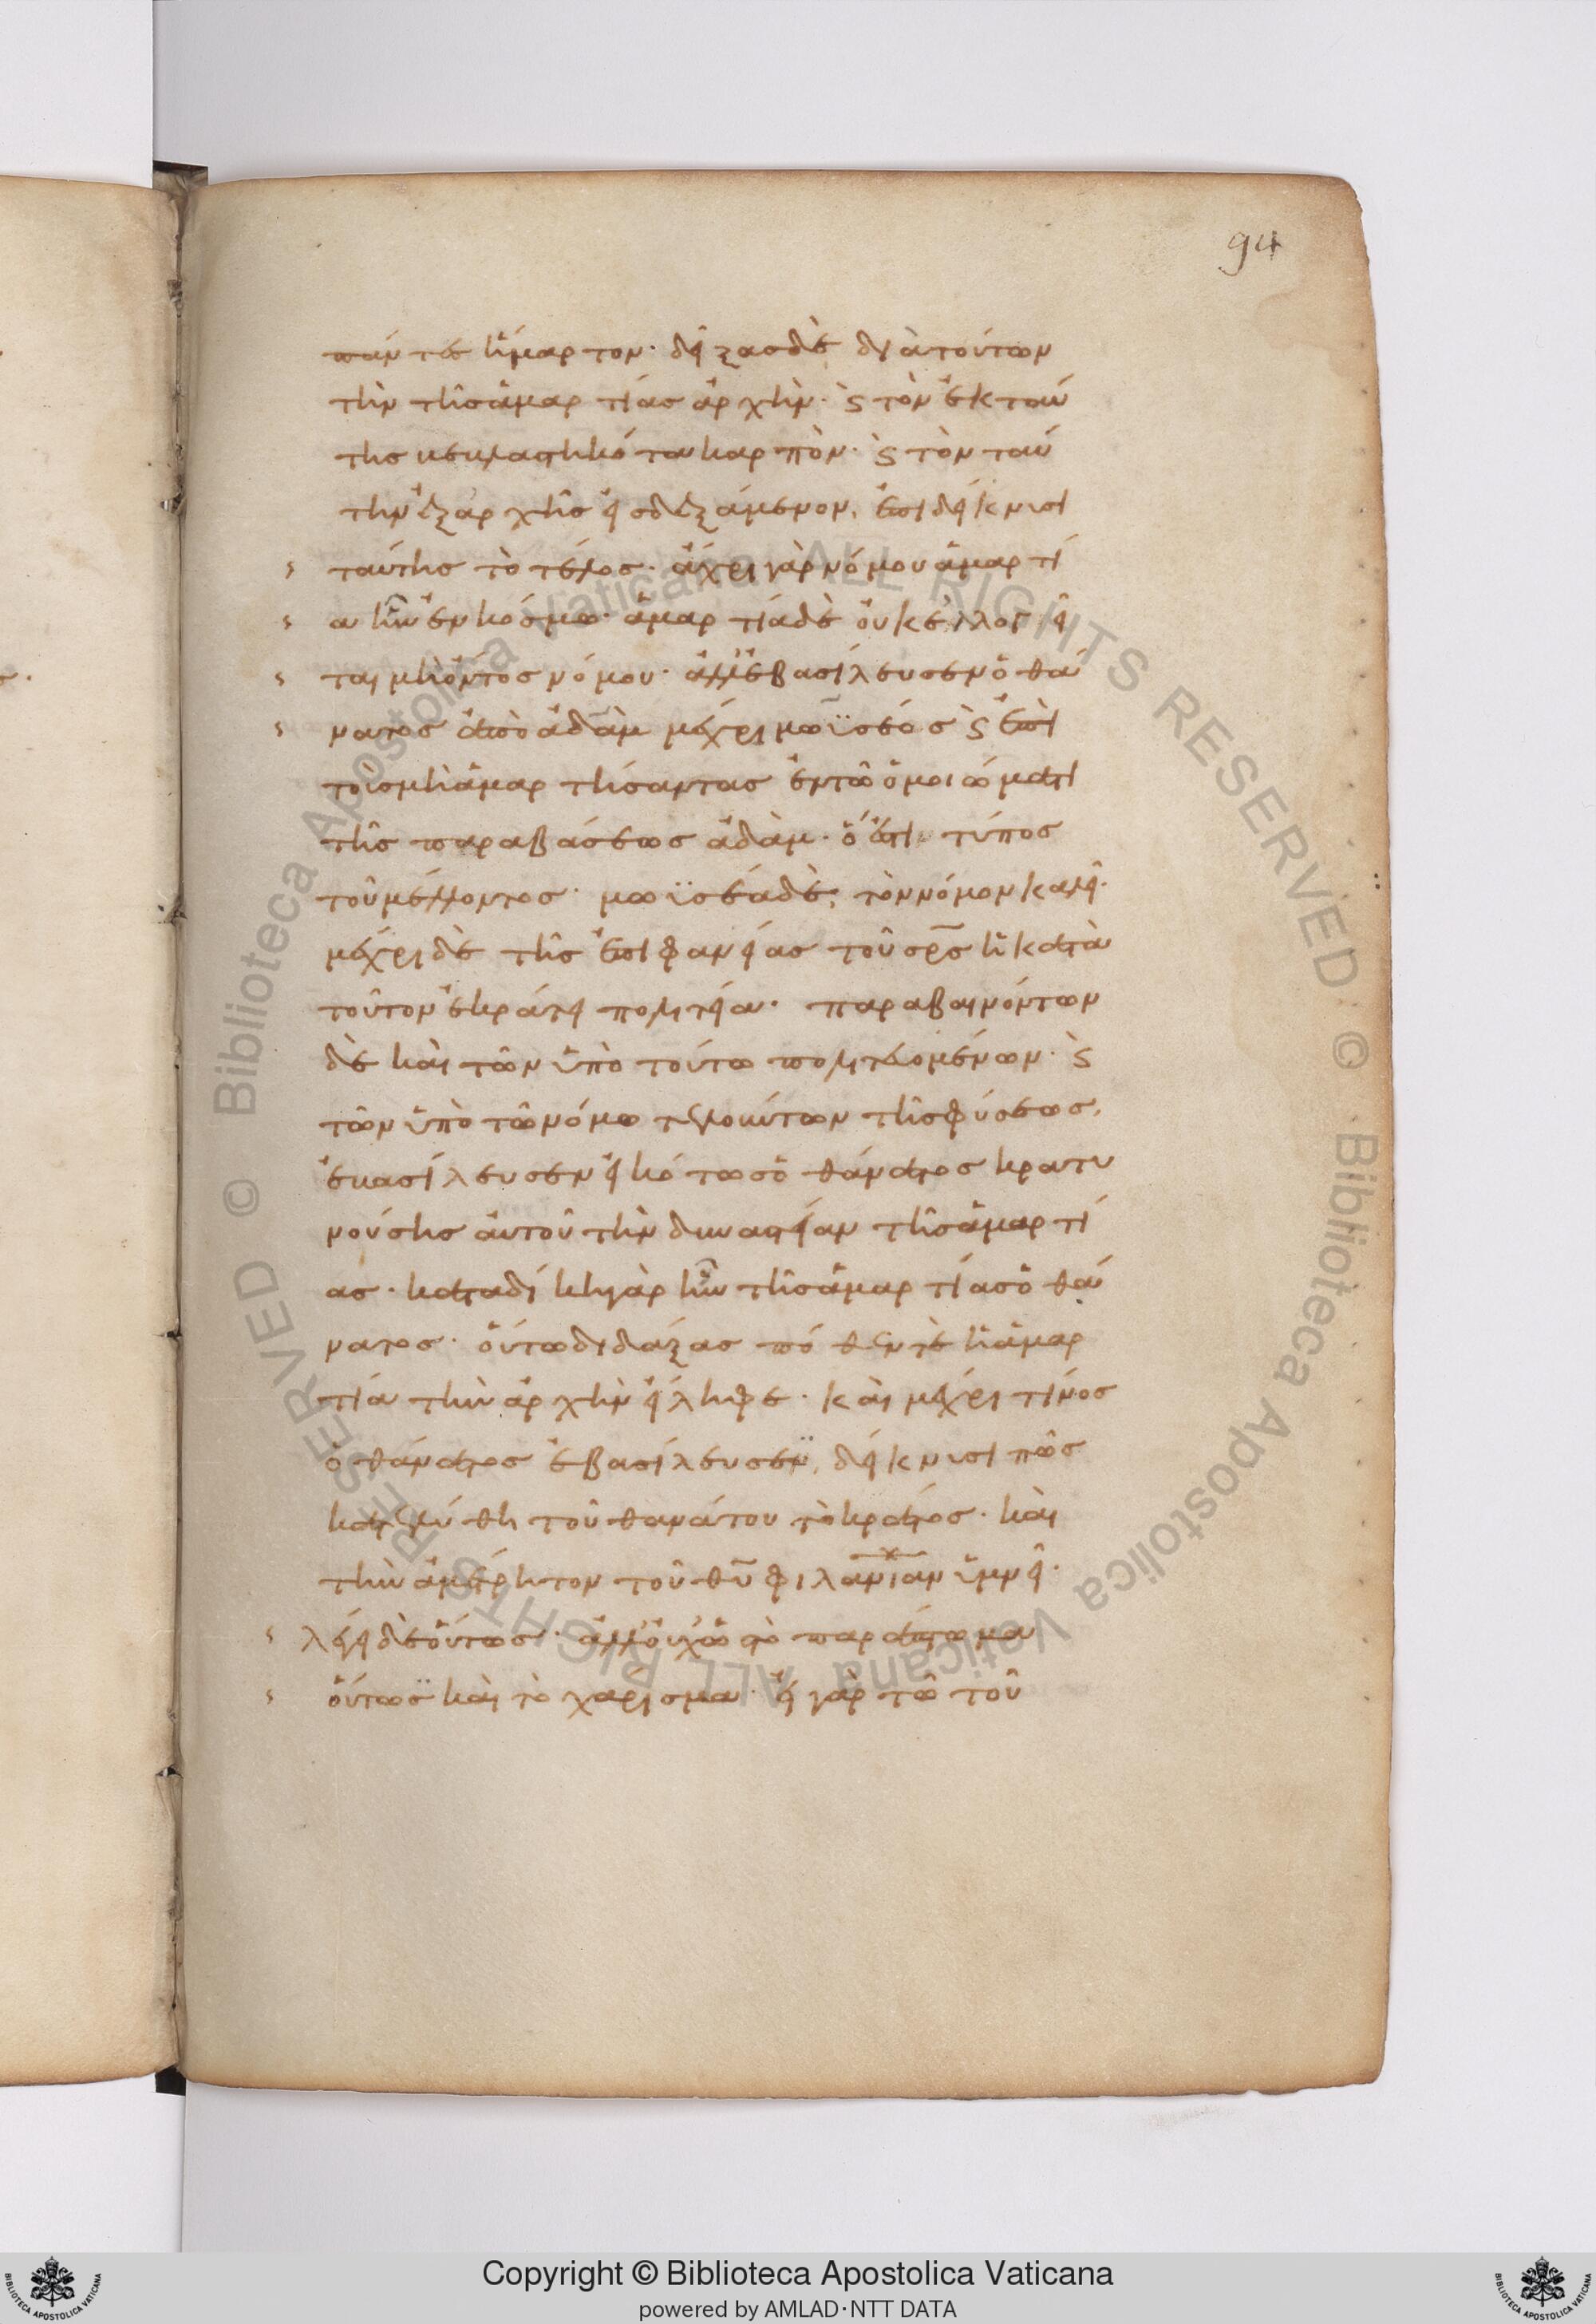 94
πάντες ἥμαρτον· δείξας δὲ διὰ τούτων
τὴν τῆς ἁμαρτίας ἀρχὴν· ϛ τὸν ἐκ ταύ
της βεβλαστηκότα καρπὸν· ϛ τὸν ταύ
την ἐξαρχῆς εἰσδεξάμενον, ἐπιδείκνυσι
ταύτης τὸ τέλος· ἄχρι γὰρ νόμου ἁμαρτί
α ἦν ἐν κόσμω· ἁμαρτία δὲ οὐκ ἐλλογεῖ
ται μὴ ὄντος νόμου· ἀλλ' ἐβασίλευσεν ὁ θά
νατος ἀπὸ ἀδὰμ μέχρι μωϋσέως ϛ ἐπὶ
τοὺς μὴ ἁμαρτήσαντας ἐν τῶ ὁμοιώματι
τῆς παραβάσεως ἀδὰμ· ὅ ἐστι τύπος
τοῦ μέλλοντος· μωϋσέα δὲ, τὸν νόμον καλεῖ·
μέχρι δὲ τῆς ἐπιφανείας τοῦ σρς ἡ κατὰ
τοῦτον ἐκράτει πολιτεία· παραβαινόντων
δὲ καὶ τῶν ὑπὸ τούτω πολιτευομένων· ϛ
τῶν ὑπὸ τῶ νόμω τελούντων τῆς φύσεως,
ἐβασίλευσεν εἰκότως ὁ θάνατος κρατυ
νούσης αὐτοῦ τὴν δυναστείαν τῆς ἁμαρτί
ας· καταδίκη γὰρ ἦν τῆς ἁμαρτίας ὁ θά
νατος· οὕτω διδάξας πόθεν τὲ ἡ ἁμαρ
τία τὴν ἀρχὴν εἴληφε· καὶ μέχρι τίνος
ὁ θάνατος ἐβασίλευσεν, δείκνυσι πῶς
κατελύθη τοῦ θανάτου τὸ κράτος· καὶ
τὴν ἀμέτρητον τοῦ θυ φιλανίαν ὑμνεῖ·
λέγει δὲ οὕτως· ἀλλ' οὐχ ὡς τὸ παράπτωμα
οὕτως καὶ τὸ χάρισμα· εἰ γὰρ τῶ τοῦ
Copyright © Biblioteca Apostolica Vaticana
powered by AMLAD·NTT DATA